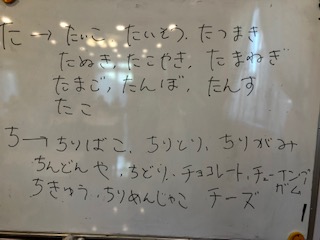 た→たいこ、たいそう、たつまき
たぬき、たこやき、たまねぎ
たまご、たんぼ、たんす
たこ
ち→ちりばこ、ちりとり、ちりがみ
ちんどんや、ちどり、チョコレート、チューインングガム
ちきゅう、ちりめんじゃこ チーズ